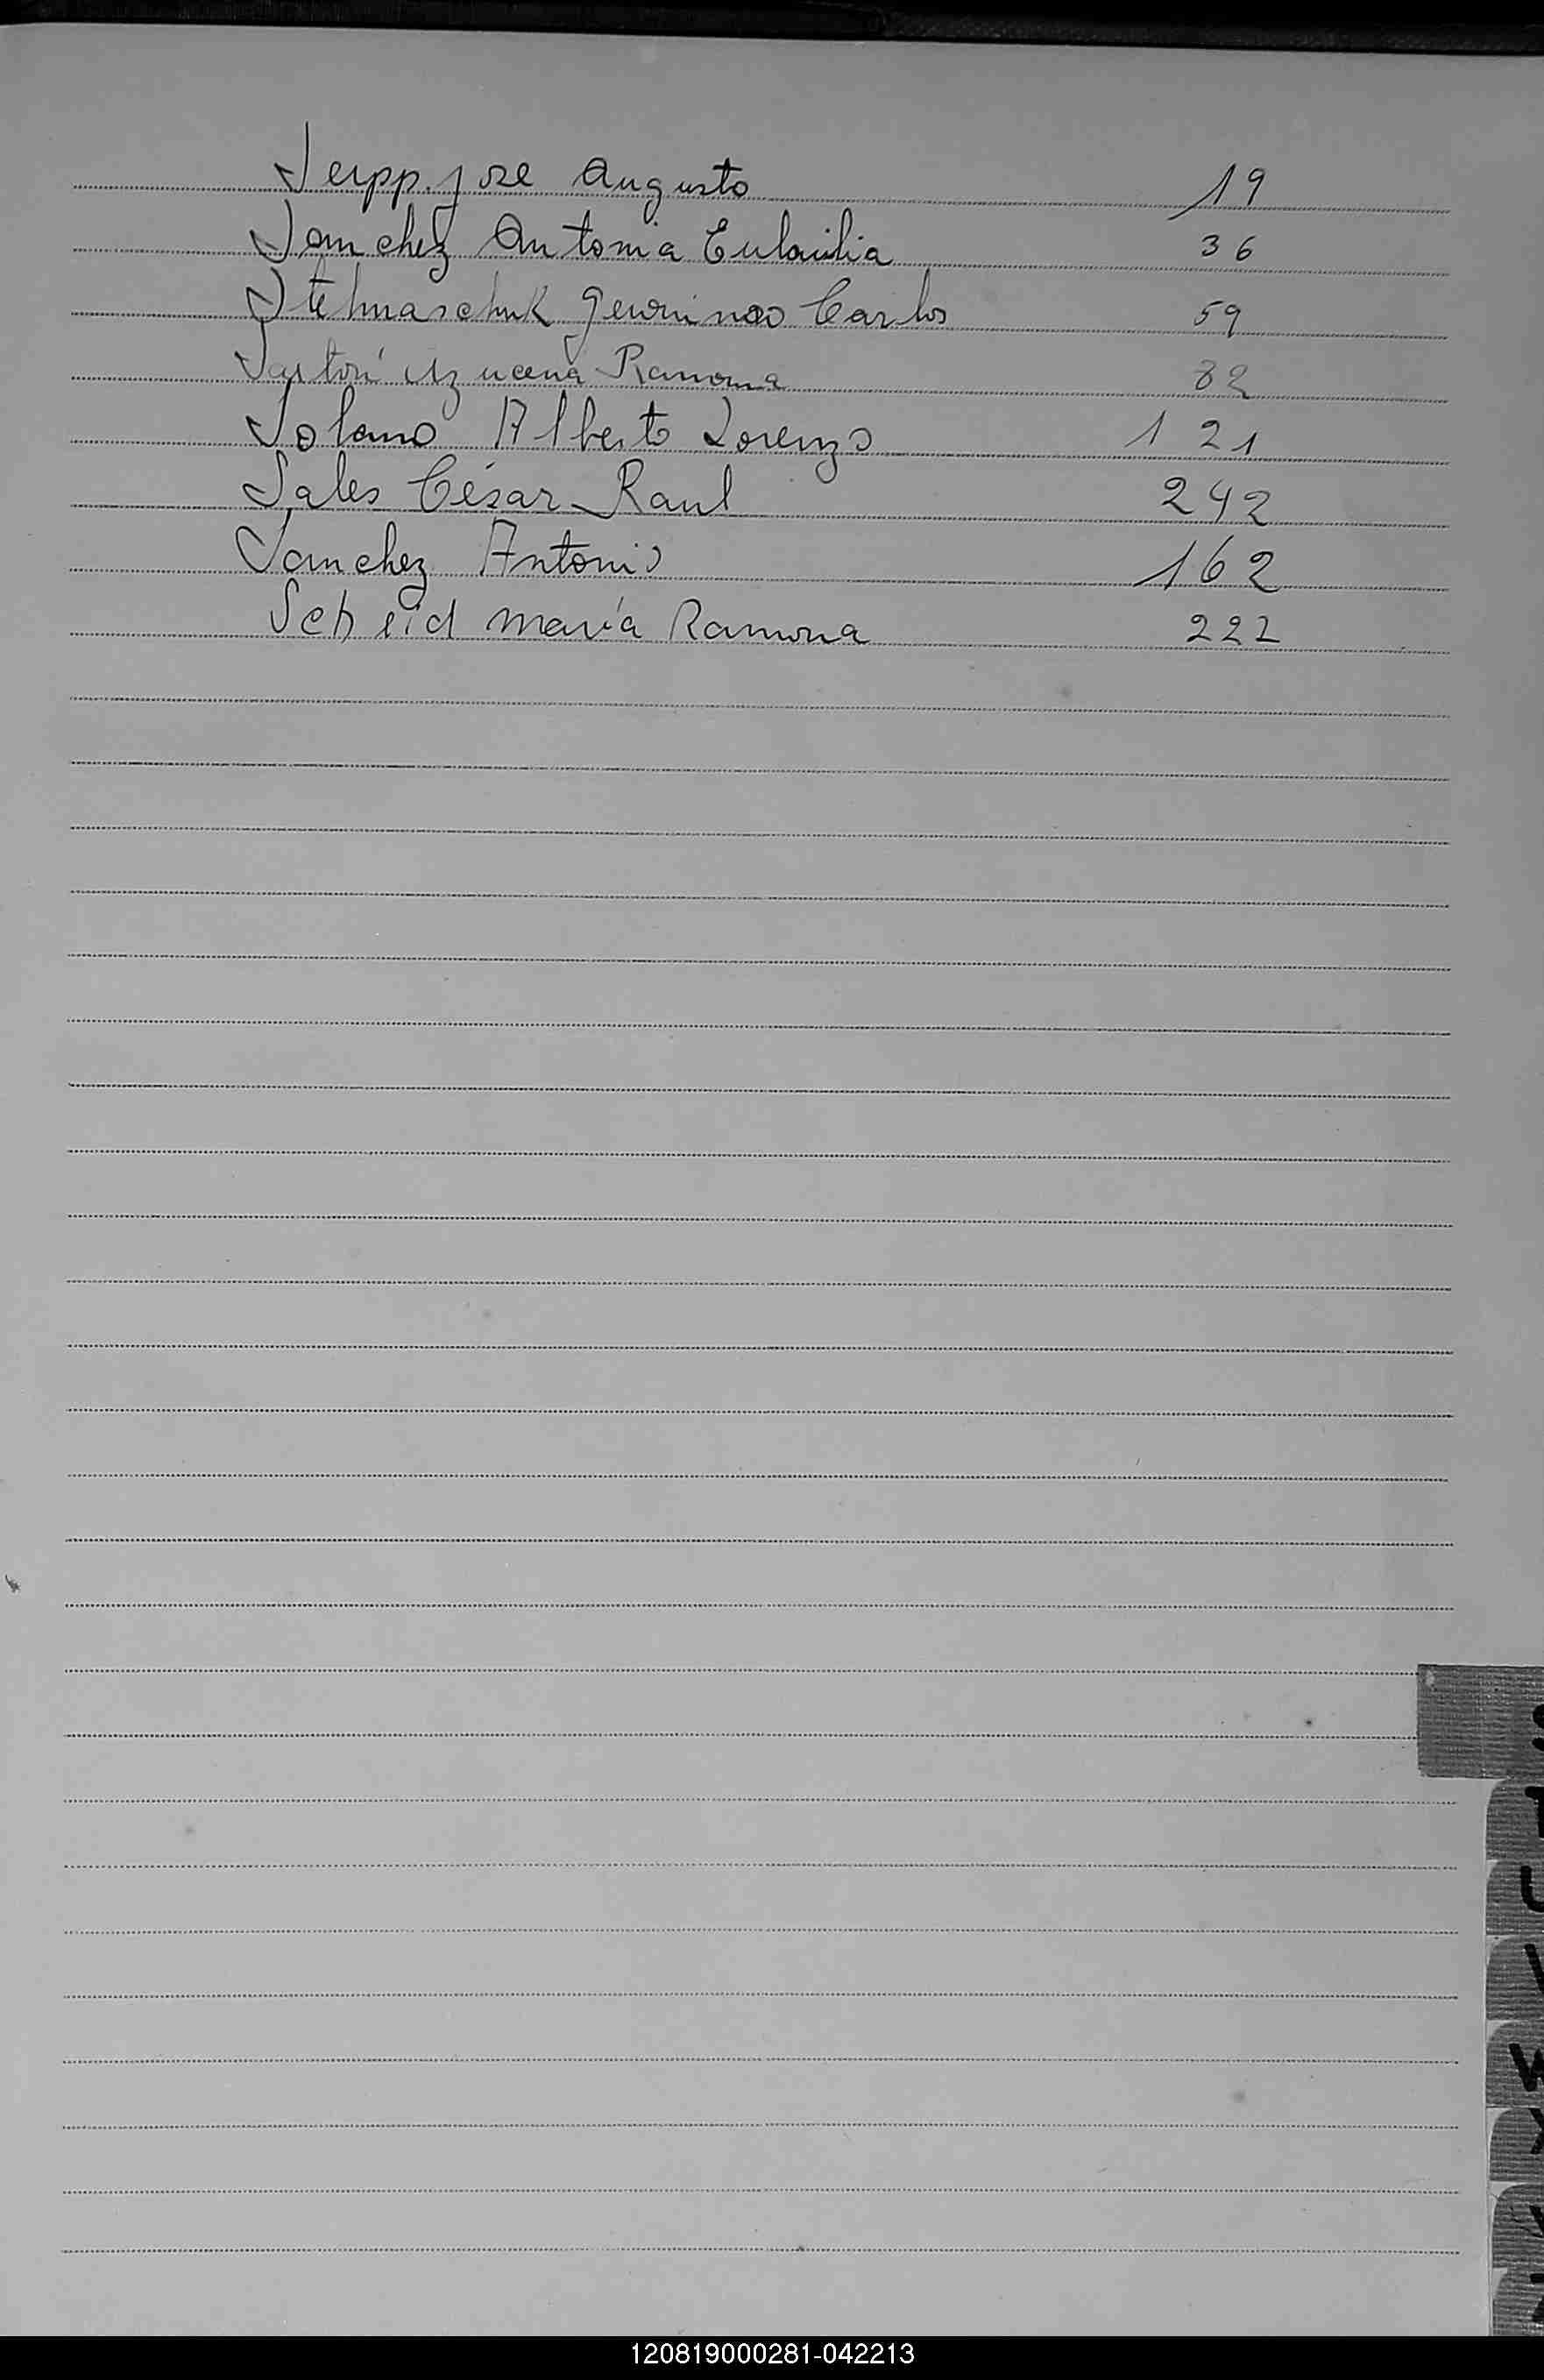 Seipp Jose Augusto 19
Sanchez Antonia Eulaulia 36
Stehnaschuk Geronimo Carlos 59
Sartori Azucena Ramona 82
Solano Alberto Lorenzo 121
Sales César Raul 242
Sanchez Antonio 162
Scheid maría Ramona 222
S
T
U
V
W
X
Y
Z
120819000281-042213